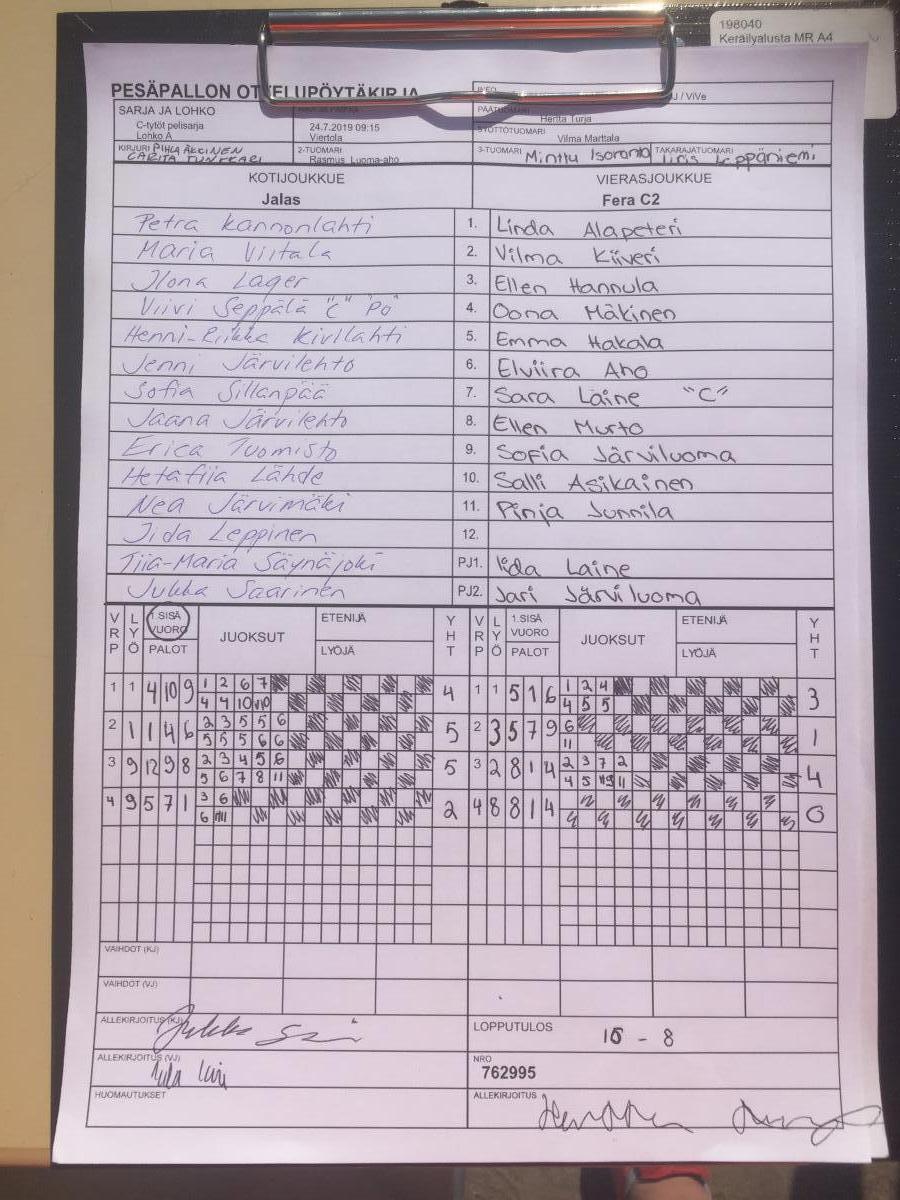 198040
Keräilyalusta MR A4
PESÄPALLON OTTELUPÖYTÄKIRJA
/ ViVe
SARJA JA LOHKO
C-tytöt pelisarja
Lohko A
24.7.2019 09:15
Viertola
PÄÄTUOMARI
Hertta Turja
SYÖTTÖTUOMARI
Vilma Marttala
KIRJURI PIHLA
CARITA
2-TUOMARI
Rasmus Luoma-aho
3-TUOMARI Minttu Isoranta
TAKARAJATUOMARI Iiris Leppäniemi
KOTIJOUKKUE VIERASJOUKKUE
Jalas Fera C2
Petra Kannonlahti 1. Linda Alapeteri
Maria Viitala 2. Vilma Kiiveri
Ilona Lager 3. Ellen Hannula
Viivi Seppälä "C" "PO" 4. Oona Mäkinen
Henni-Riikka Kivilahti 5. Emma Hakala
Jenni Järvilehto 6. Elviira Aho
Sofia Sillanpää 7. Sara Laine "C"
Jaana Järvilehto 8. Ellen Murto
Erica Tuomisto 9. Sofia Järviluoma
Lähde 10. Salli Asikainen
Nea Järvimäki 11. Pinja Junnila
Iida Leppinen 12.
Tiia-Maria Säynäjoki PJ1. Iida Laine
Jukka Saarinen PJ2. Jari Järviluoma
VRP LYÖ 1.SISÄ VUORO PALOT JUOKSUT ETENIJÄ LYÖJÄ YHT VRP LYÖ 1.SISÄ VUORO PALOT JUOKSUT ETENIJÄ LYÖJÄ YHT
1 1 4 10 9 1 2 6 7 4 1 1 5 1 6 1 2 4 3
4 4 10 4 5 5
2 1 1 4 6 2 3 5 5 6 5 2 3 5 7 9 6 1
5 5 5 6 6 11
3 9 12 9 8 2 3 4 5 6 5 3 2 8 1 4 2 3 7 2 4
5 6 7 8 11 4 5 11
4 9 5 7 1 3 6 2 4 8 8 1 4 0
6
VAIHDOT (KJ)
VAIHDOT (VJ)
ALLEKIRJOITUS (KJ)
LOPPUTULOS 16 - 8
ALLEKIRJOITUS (VJ)
NRO
762995
HUOMAUTUKSET
ALLEKIRJOITUS